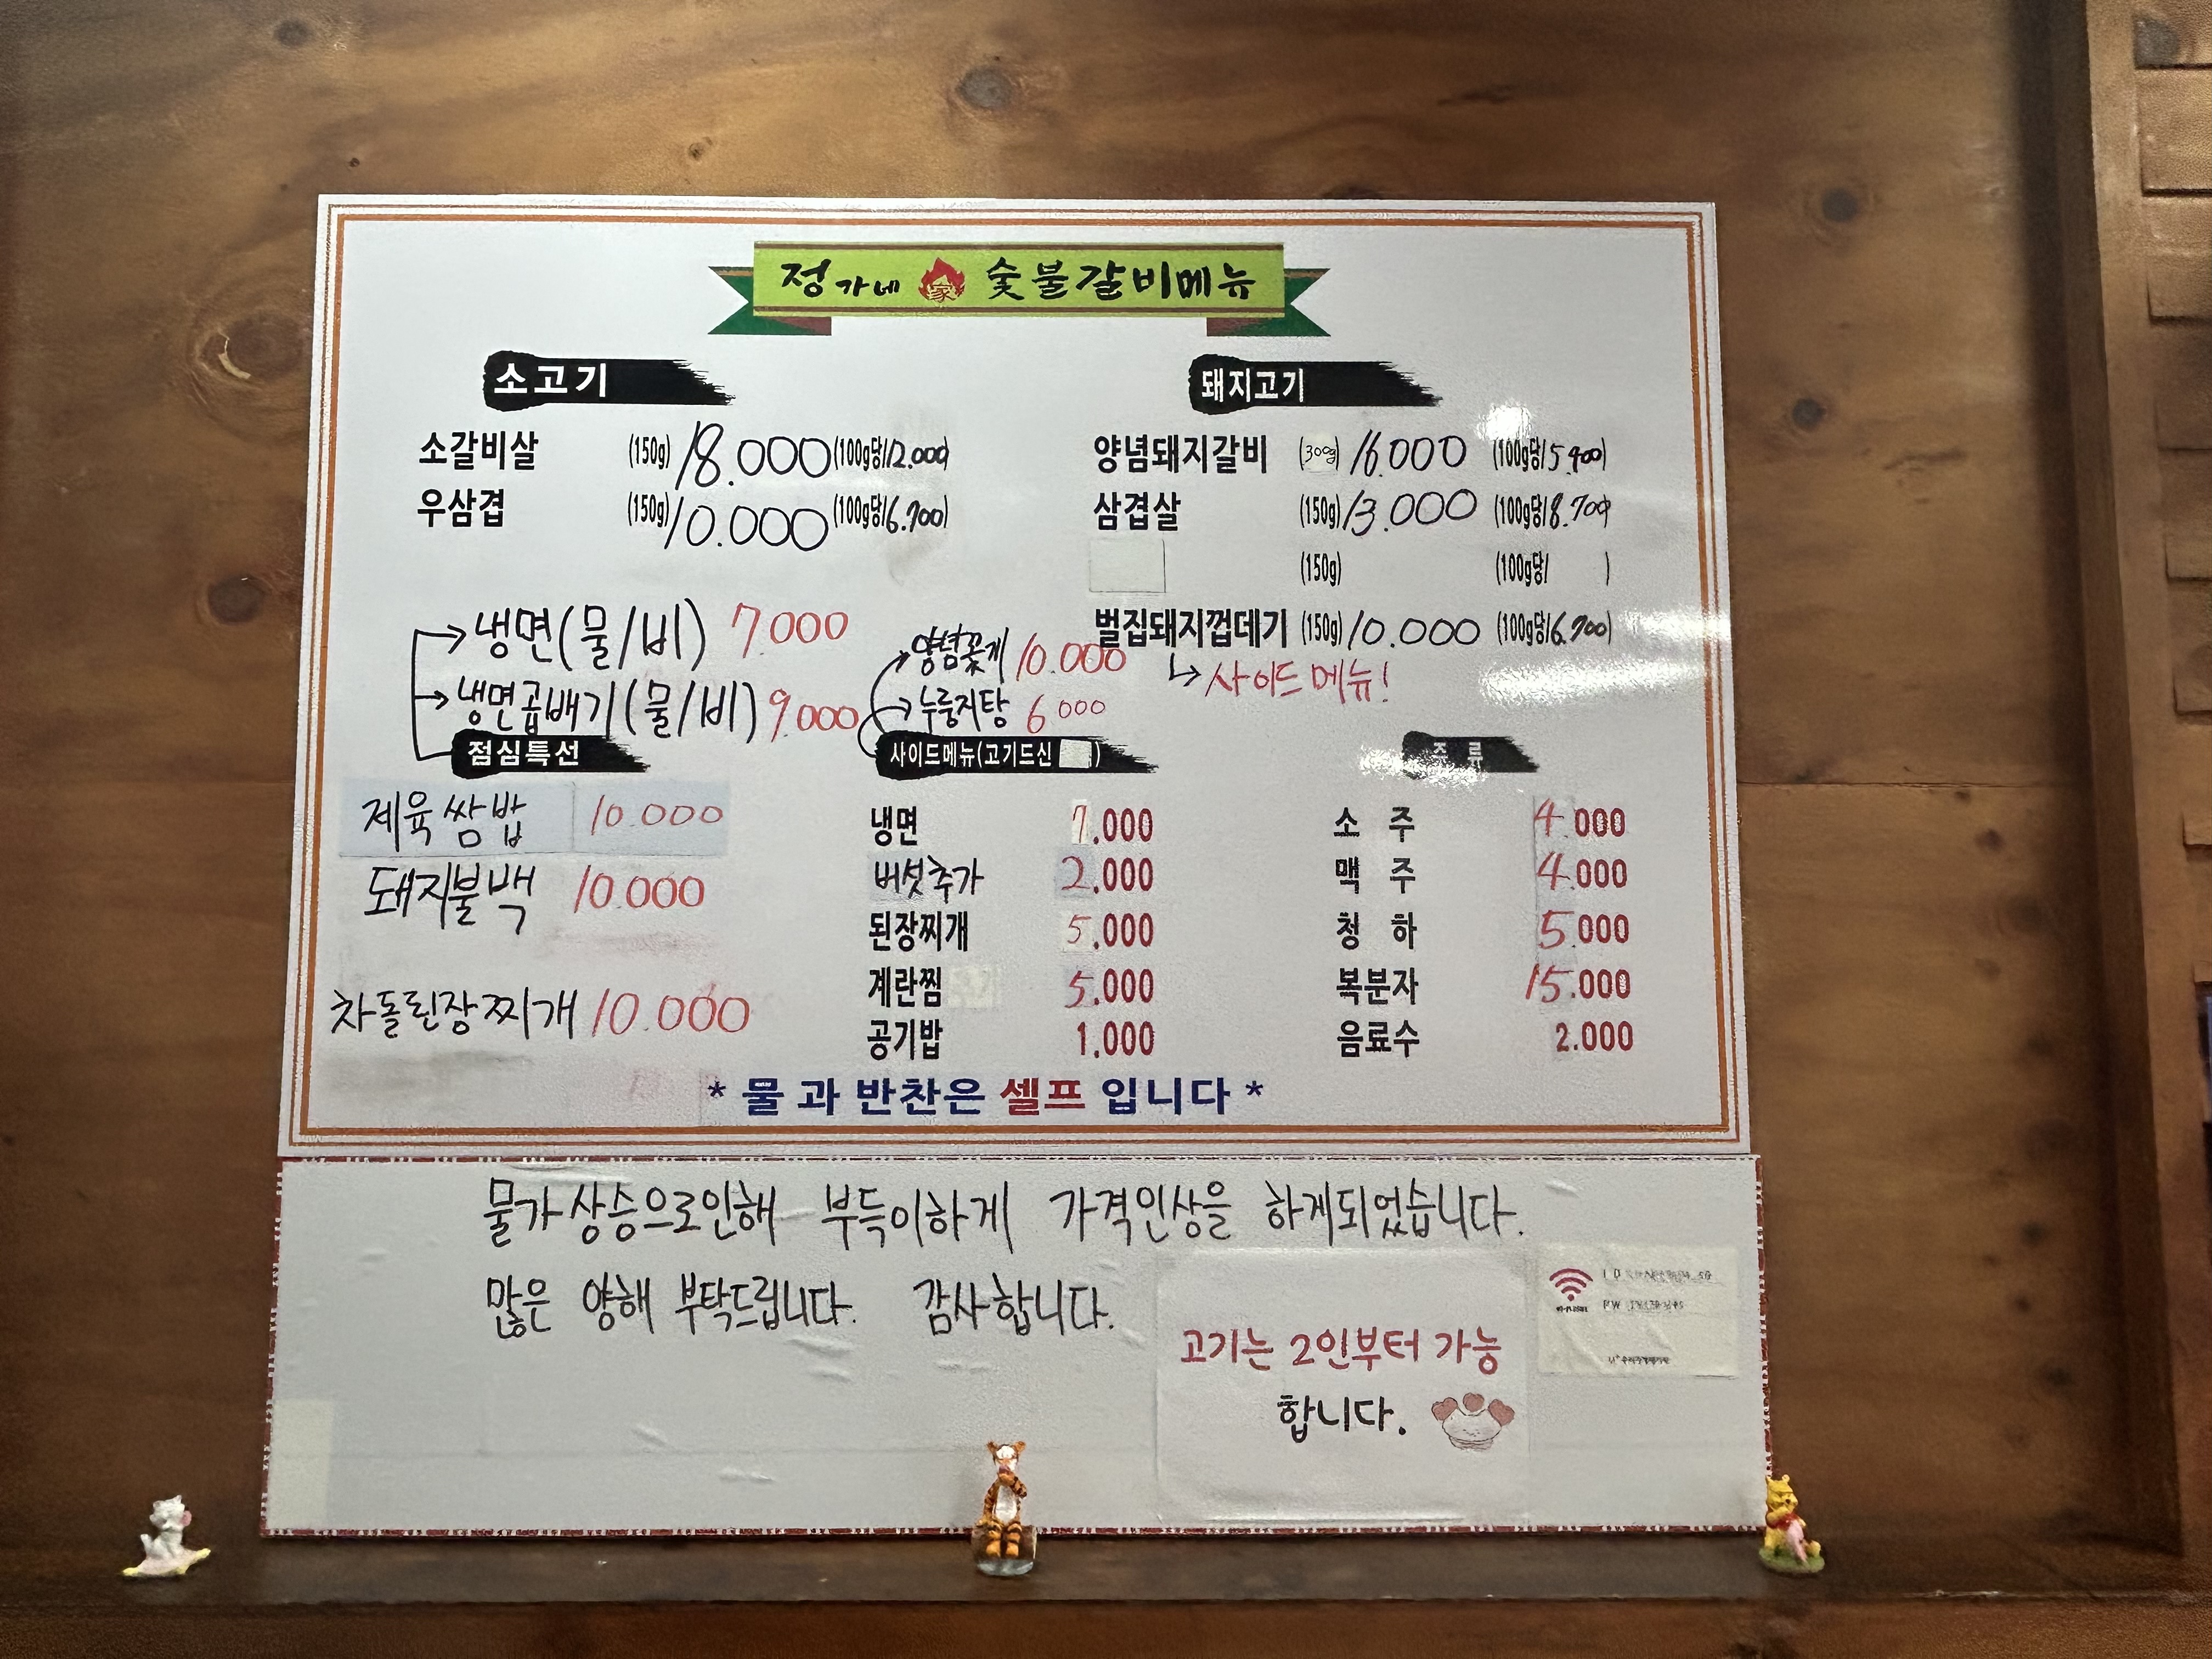 정가네 家 숯불갈비메뉴
소고기
소갈비살 (150g) 18.000 (100g당/12.000)
우삼겹 (150g) 10.000 (100g당/6.700)
돼지고기
양념돼지갈비 (300g) 16.000 (100g당/5.400)
삼겹살 (150g) 13.000 (100g당/8.700)
(150g) (100g당/ )
벌집돼지껍데기 (150g) 10.000 (100g당/6.700)
↳ 사이드메뉴!
냉면(물/비) 7.000
냉면곱배기(물/비) 9.000
점심특선
제육쌈밥 10.000
돼지불백 10.000
차돌된장찌개 10.000
양념꽃게 10.000
누룽지탕 6000
사이드메뉴(고기드신 )
냉면 7.000
버섯추가 2.000
된장찌개 5.000
계란찜 5.000
공기밥 1.000
주 류
소 주 4.000
맥 주 4.000
청 하 5.000
복분자 15.000
음료수 2.000
* 물과 반찬은 셀프 입니다 *
물가상승으로인해 부득이하게 가격인상을 하게되었습니다.
많은 양해 부탁드립니다. 감사합니다.
고기는 2인부터 가능
합니다.
ID
PW